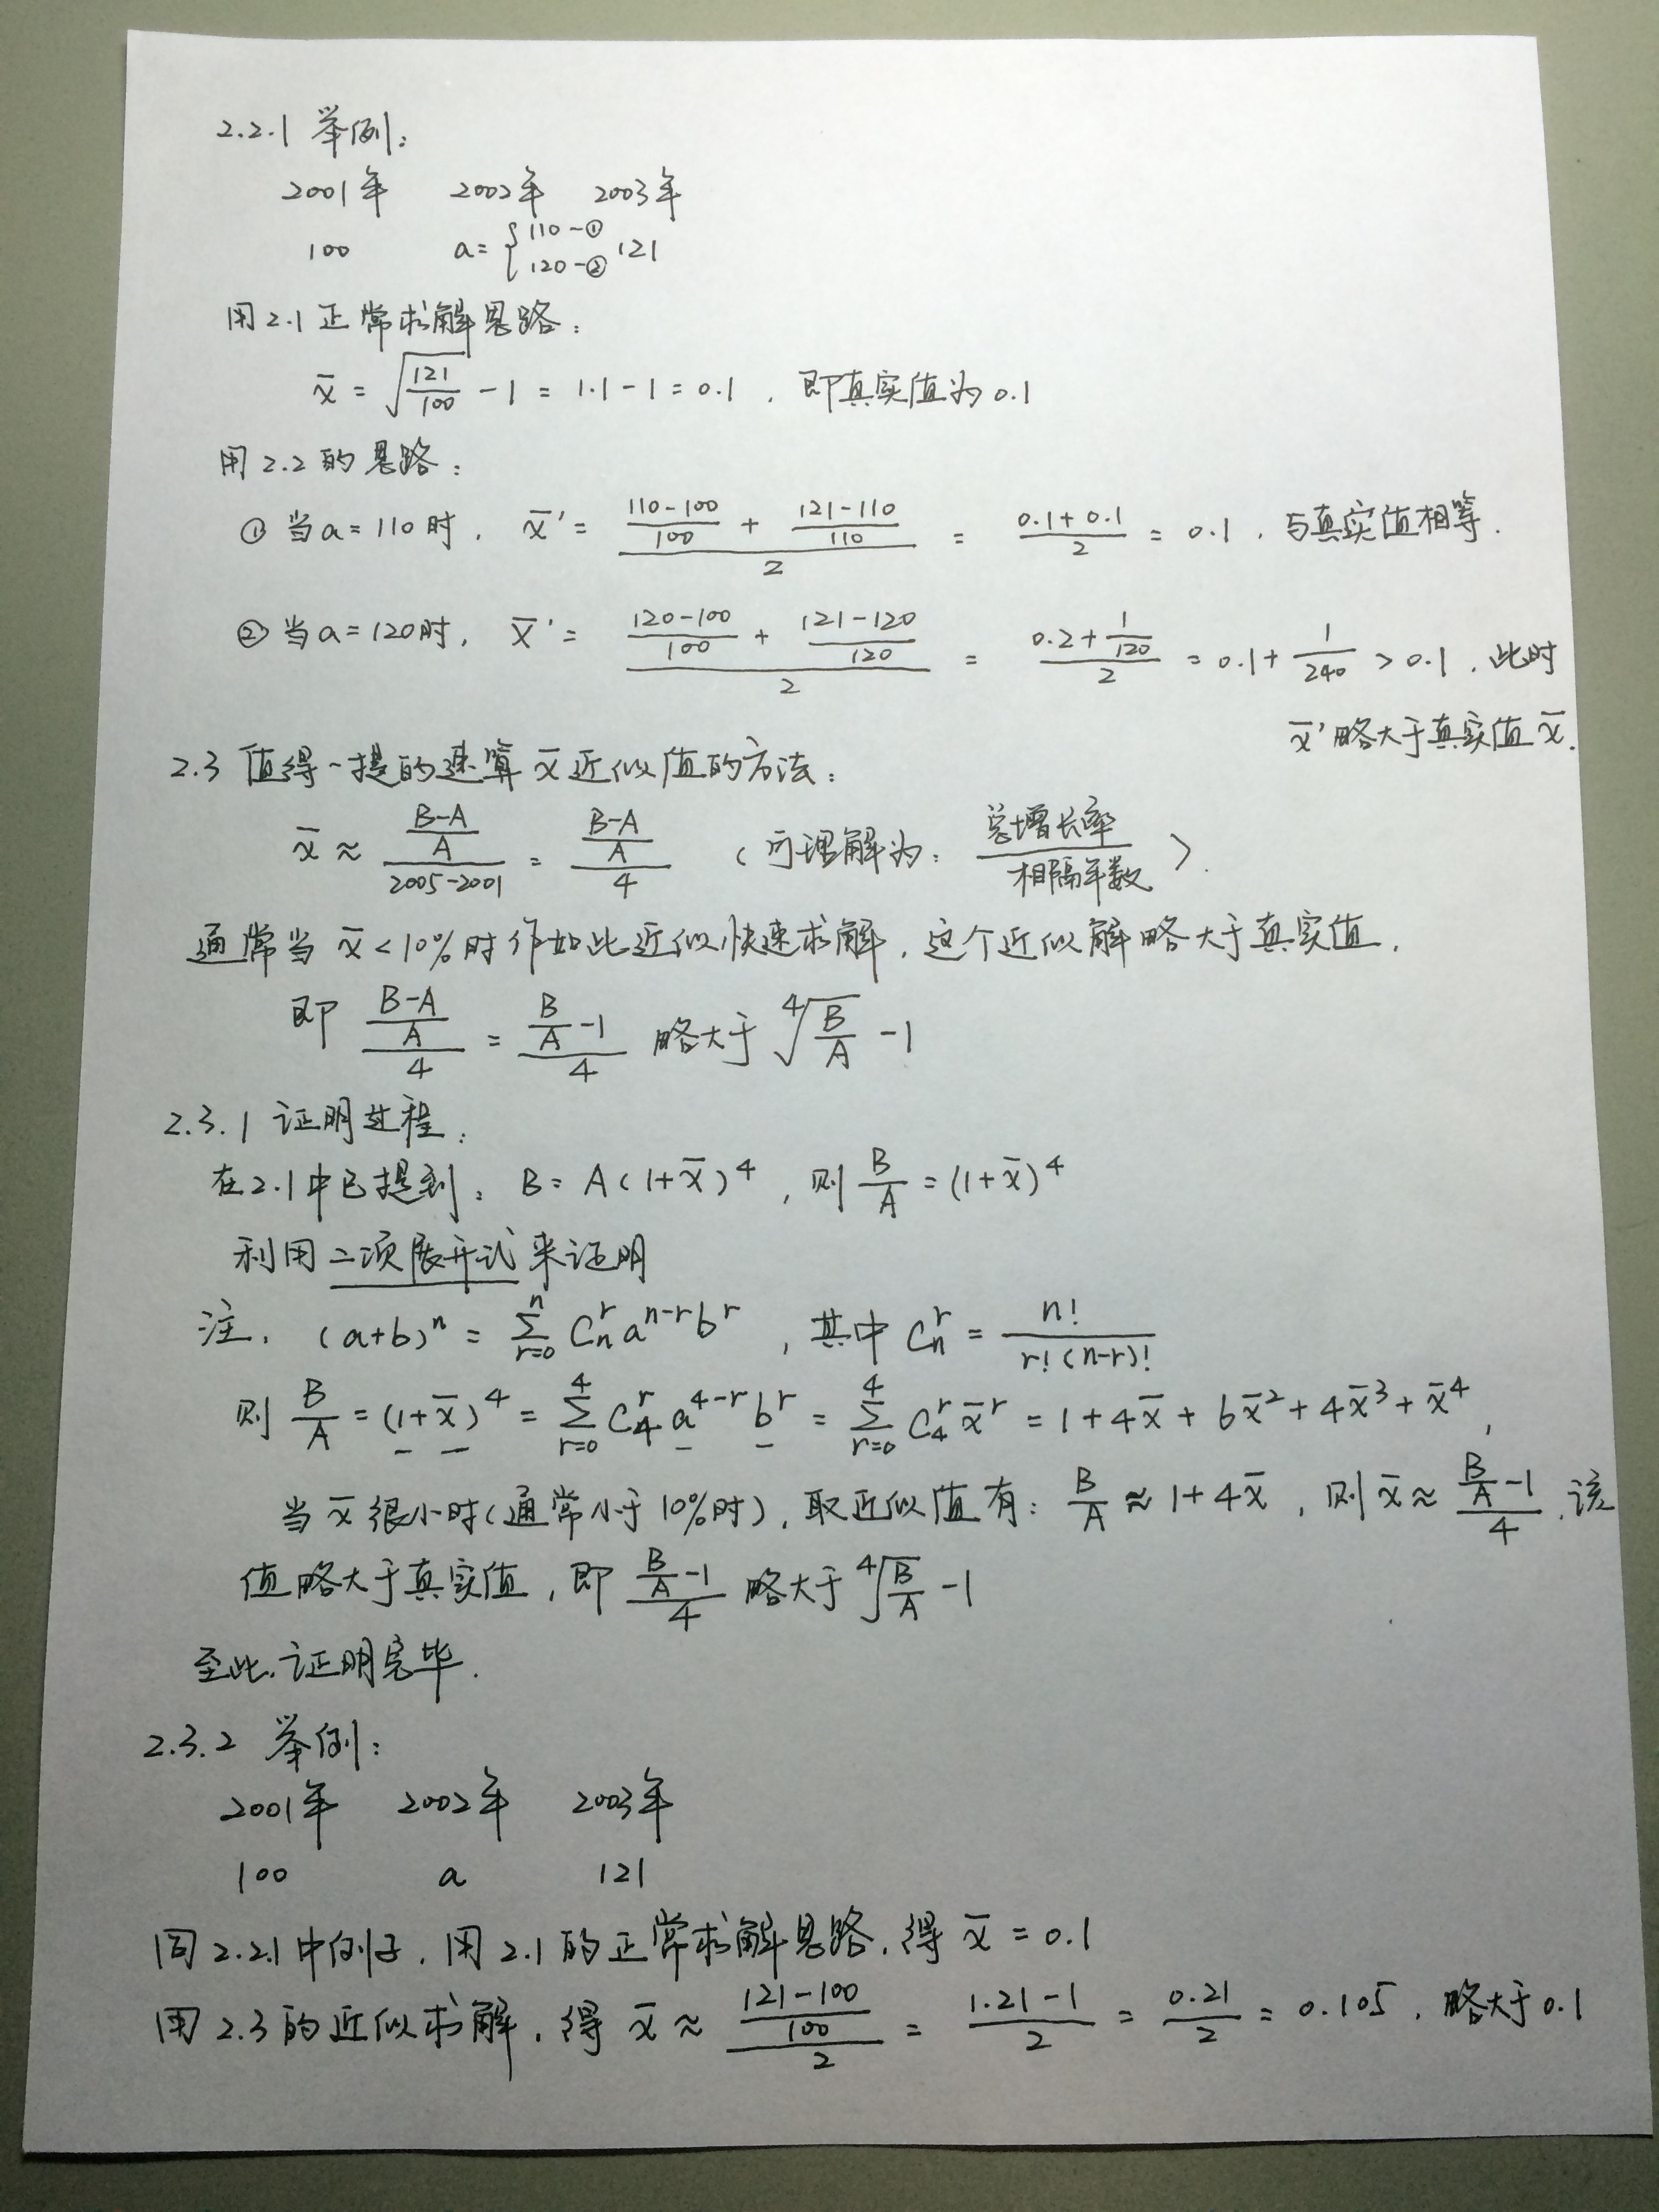 2.2.1 举例:
2001年 2002年 2003年
100 a={110-① 120-② 121
用2.1正常求解思路:
x̄ = √(121/100) - 1 = 1.1 - 1 = 0.1, 即真实值为0.1
用2.2的思路:
① 当a=110时, x̄' = ((110-100)/100 + (121-110)/110)/2 = (0.1+0.1)/2 = 0.1, 与真实值相等.
② 当a=120时, x̄' = ((120-100)/100 + (121-120)/120)/2 = (0.2+1/120)/2 = 0.1+1/240 > 0.1, 此时
x̄'略大于真实值x̄.
2.3 值得一提的速算x̄近似值的方法:
x̄ ≈ ((B-A)/A)/(2005-2001) = ((B-A)/A)/4 (可理解为: 总增长率/相隔年数).
通常当x̄<10%时作如此近似快速求解, 这个近似解略大于真实值,
即 ((B-A)/A)/4 = (B/A-1)/4 略大于 ⁴√(B/A) - 1
2.3.1 证明过程:
在2.1中已提到: B=A(1+x̄)⁴, 则 B/A = (1+x̄)⁴
利用二项展开式来证明
注. (a+b)ⁿ = Σ(r=0→n) Cₙʳ aⁿ⁻ʳ bʳ, 其中 Cₙʳ = n!/(r!(n-r)!)
则 B/A = (1+x̄)⁴ = Σ(r=0→4) C₄ʳ a⁴⁻ʳ bʳ = Σ(r=0→4) C₄ʳ x̄ʳ = 1+4x̄+6x̄²+4x̄³+x̄⁴,
当x̄很小时(通常小于10%时), 取近似值有: B/A ≈ 1+4x̄, 则 x̄ ≈ (B/A-1)/4, 该
值略大于真实值, 即 (B/A-1)/4 略大于 ⁴√(B/A) - 1
至此, 证明完毕.
2.3.2 举例:
2001年 2002年 2003年
100 a 121
同2.2.1中例子, 用2.1的正常求解思路, 得 x̄=0.1
用2.3的近似求解, 得 x̄ ≈ ((121-100)/100)/2 = (1.21-1)/2 = 0.21/2 = 0.105, 略大于0.1